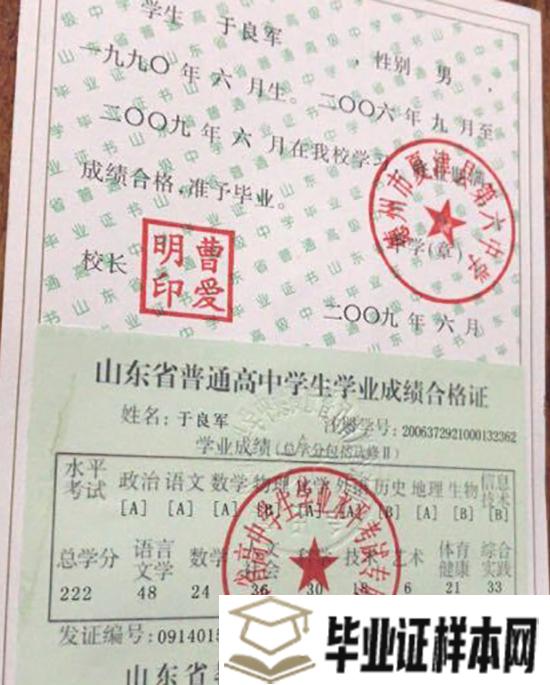 学生 于良军 , 性别 男 ,
一九九〇 年 六 月生。二〇〇六 年 九 月至
二〇〇九 年 六 月在我校学习
成绩合格,准予毕业。
德州市夏津县第六中学
中学(章)
校长
曹爱明印
二〇〇九 年 六 月
山东省普通高中学生学业成绩合格证
姓名:于良军 注册学号:2006372921000132362
学业成绩(总学分包括选修Ⅱ)
水平考试 政治 语文 数学 物理 化学 外语 历史 地理 生物 信息技术
[A] [A] [A] [B] [A] [B] [A] [B] [B]
总学分 语言文学 数学 技术 艺术 体育健康 综合实践
222 48 24 36 30 18 6 21 33
发证编号:0914015
山东省
毕业证样本网